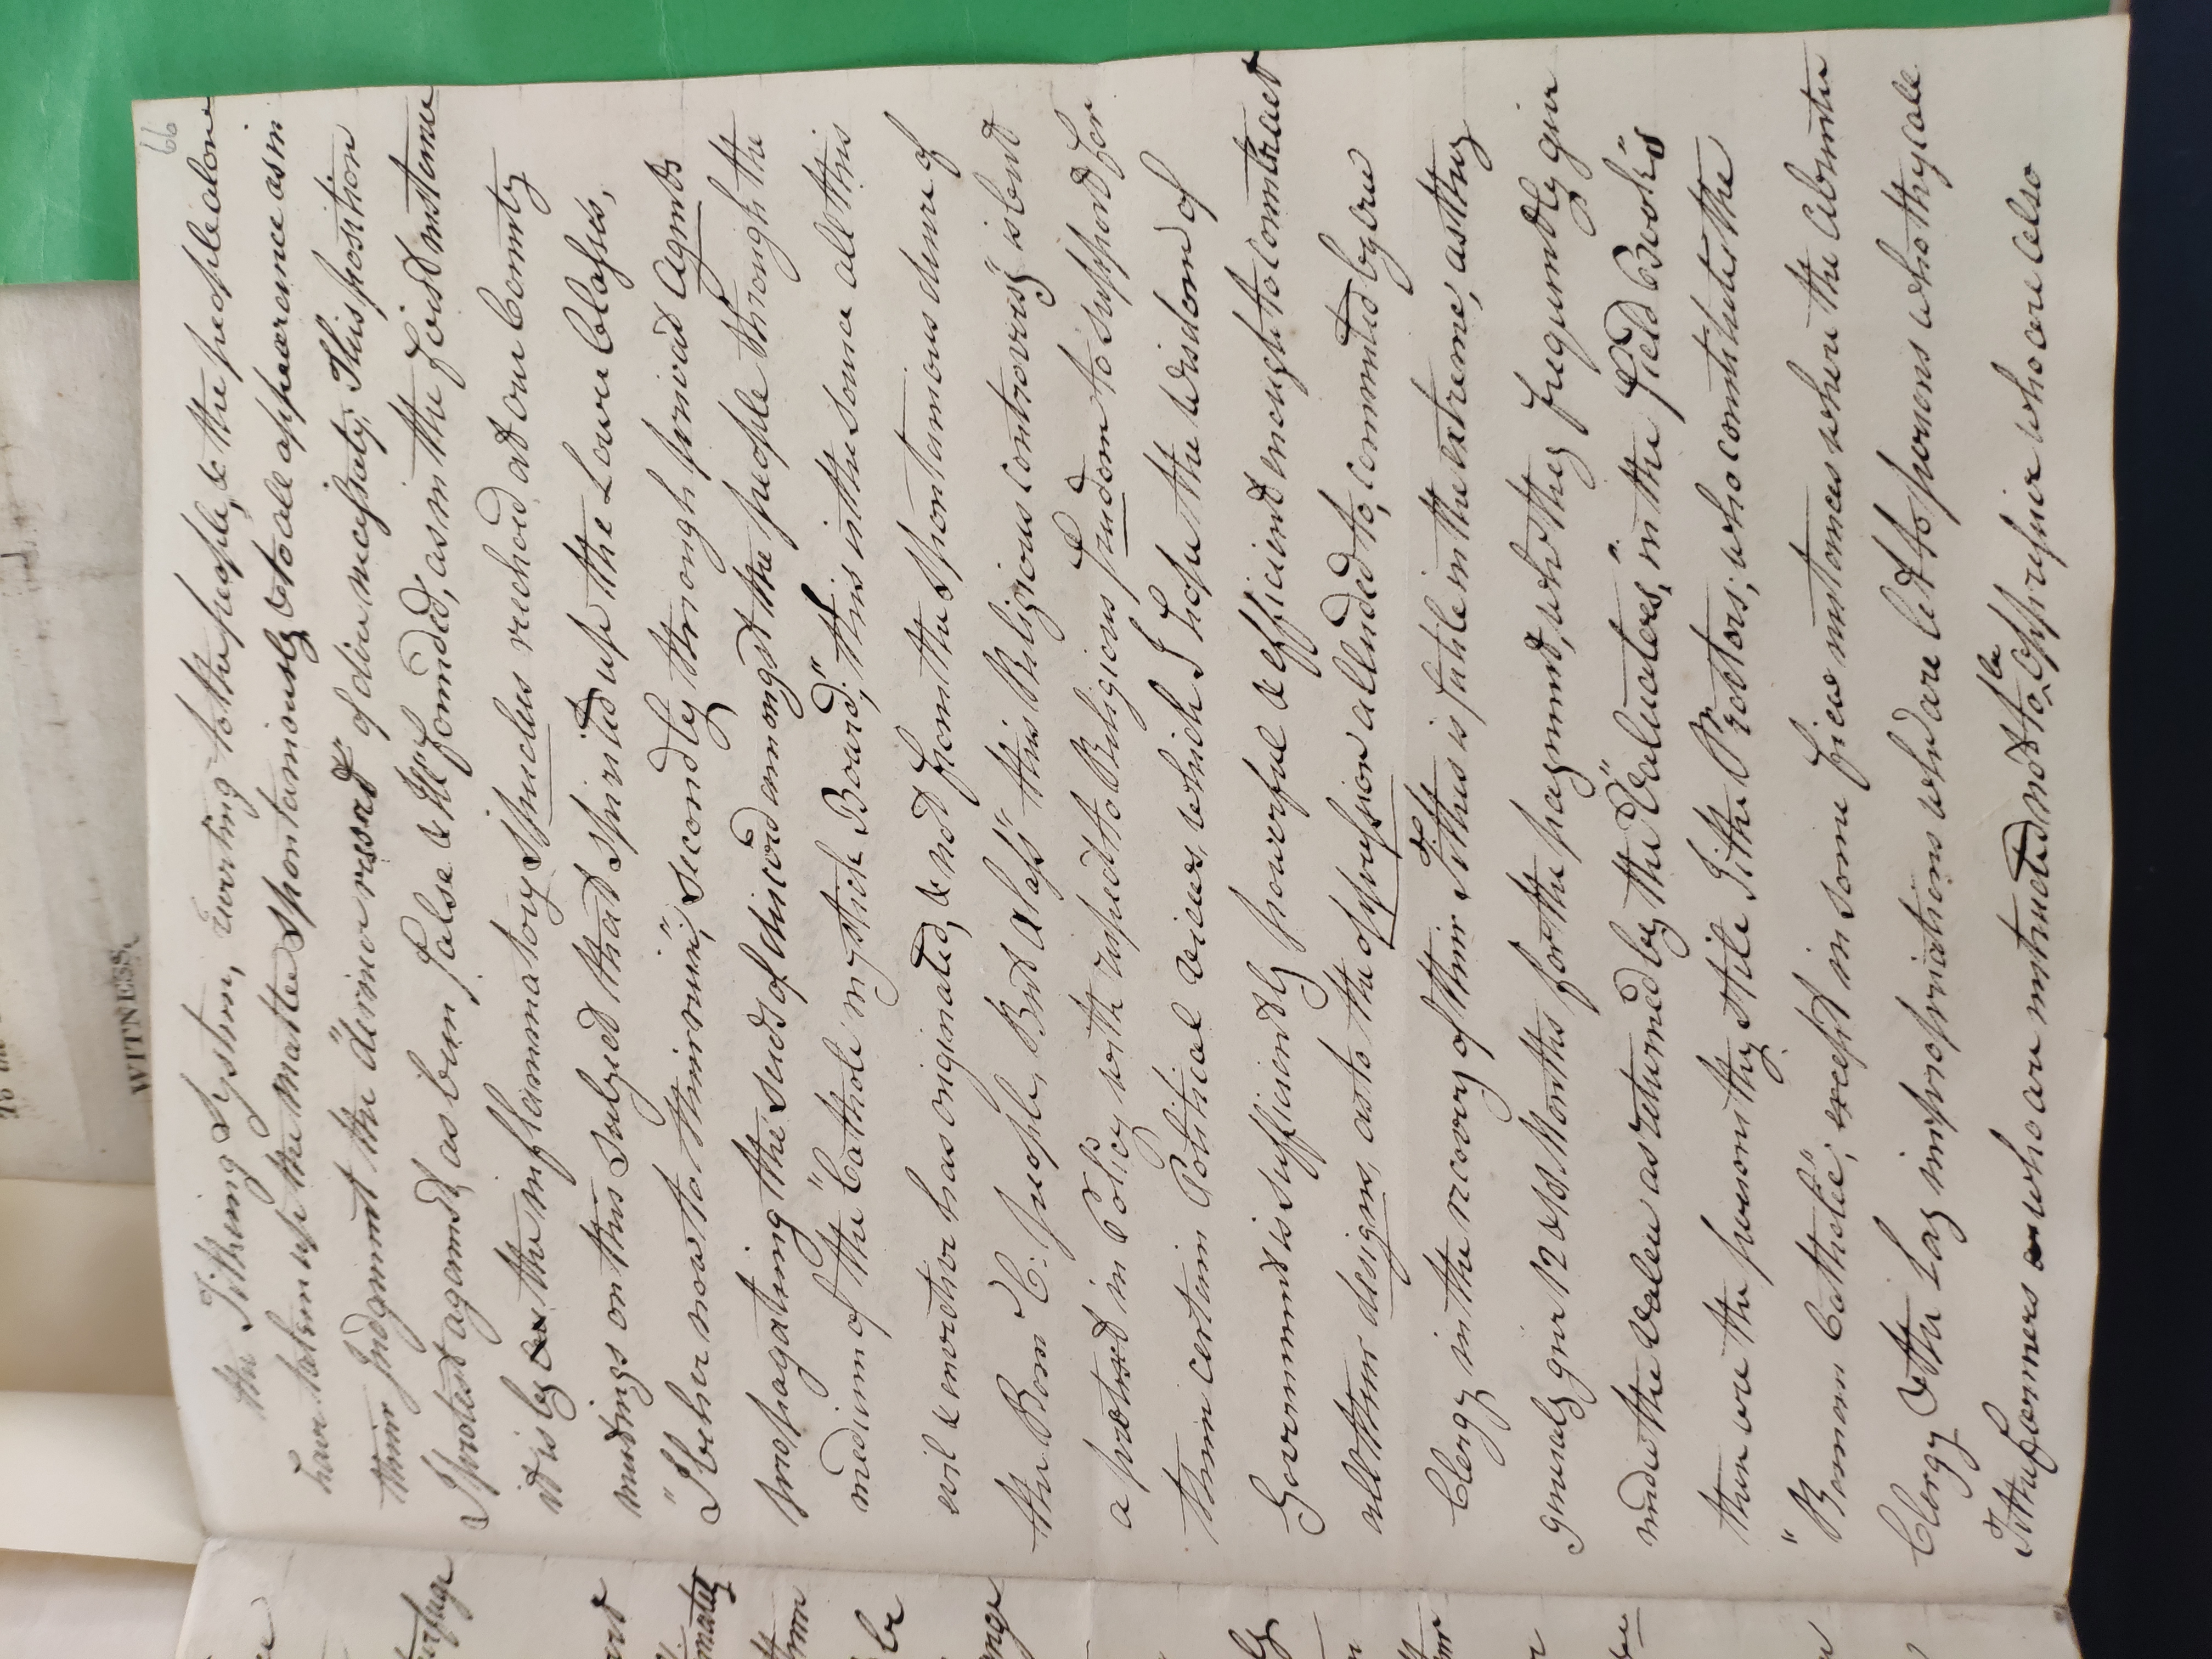 66
the Tithing System, reverting to the people, & the people alone
have taken up the matter spontaneously & to all appearance as in
their Judgment the "dernier resort" of dire necessity. This position
I protest against as been false & ill founded, as in the first instance
it is by the inflammatory speeches vechoed at our County
meetings on this subject that spirited up the Lower Classes,
"Sber now to their ruin", secondly through private agents
propagating the seeds of discord amongst the people through the
medium of the "Catholi mystick Board", this is the source all this
evil & emotion has originated, & not from the spontanious desire of
the Rom C. people, But alass this Religious controversy" is bent
a protest in Policy with respect to Religious freedom to support for
them certain Political views, which I hope the wisdom of
Government is sufficiently powerful & efficient enough to contract
all their designs, as to the oppression alluded to, committed by the
Clergy in the recovery of their Tithes is futile in the extreme, as they
generaly give 12 & 18 Months for the payment, who they frequently give
under the value as returned by the "Valuators", in the "field Book's"
then are the persons they stile Tithe Proctors, who constitutes the
"Roman Catholic", except in some few instances where the Absentee
Clergy & the Lay impropriations who are let to persons who they call
Tithe farmers who are instructed not to be oppressive who are also
WITNESS,